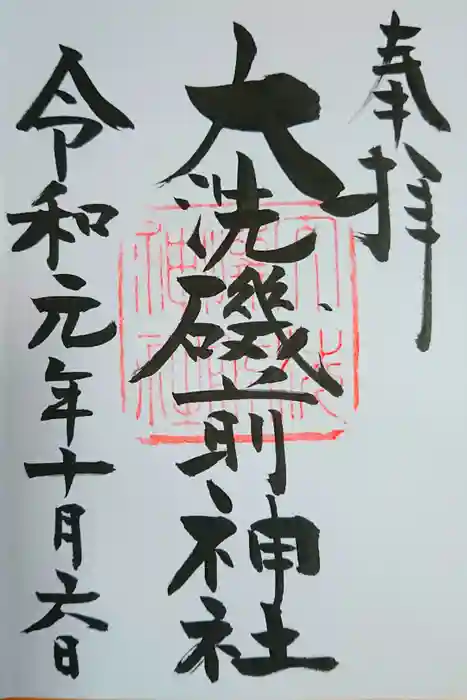 奉拝
大洗磯前神社
令和元年十月六日